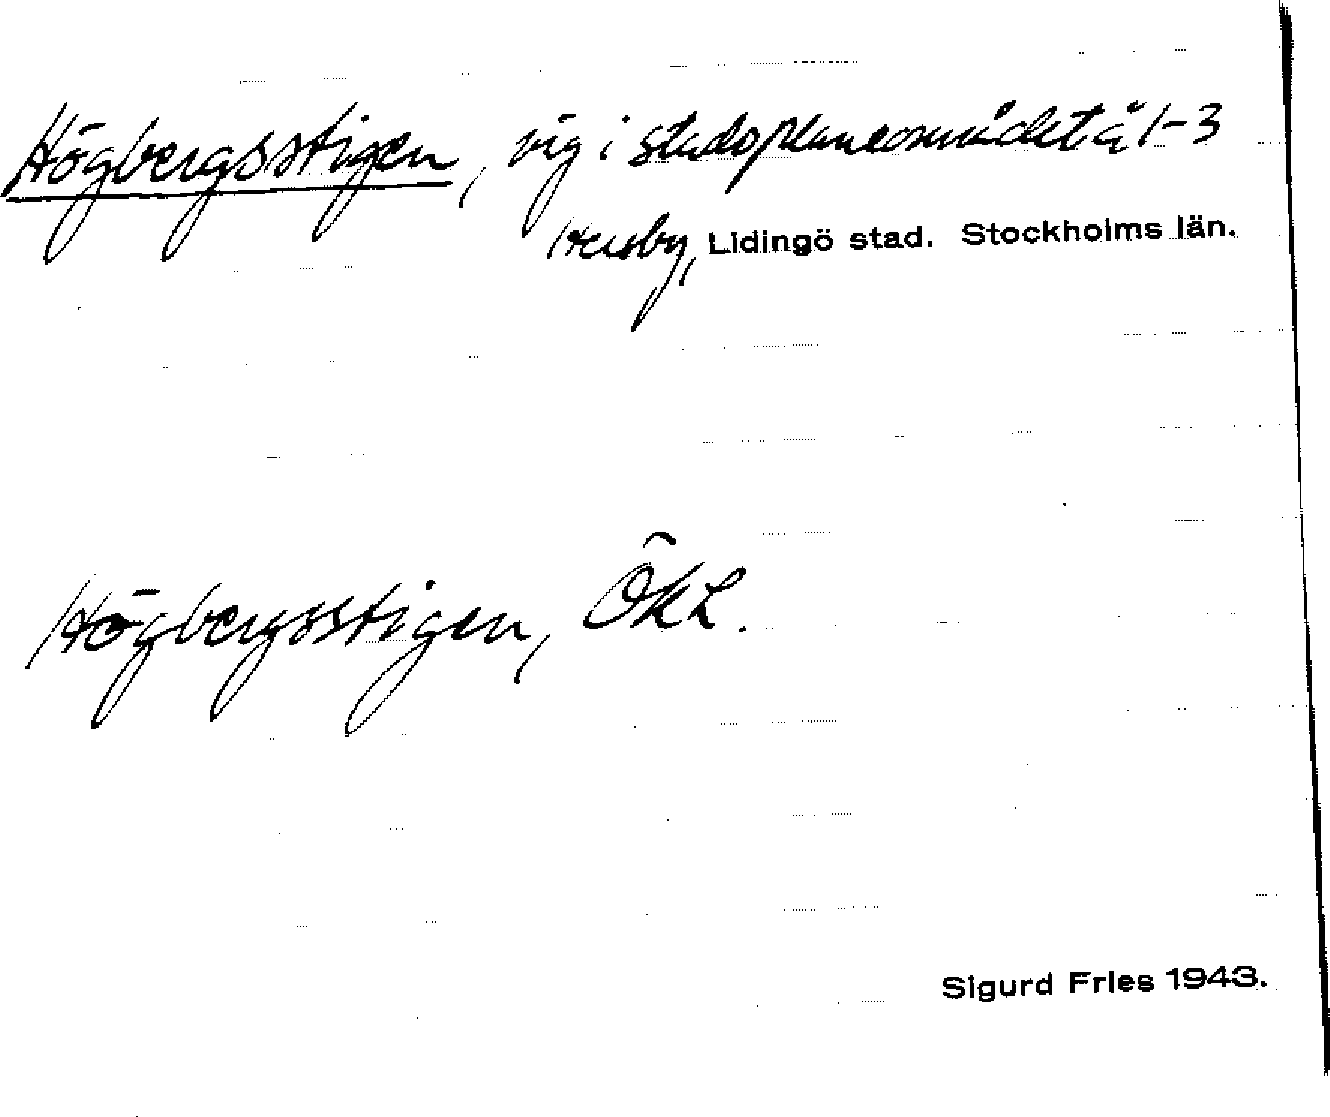 Högbergsstigen, väg i stadsplaneområdet å 1-3
Hersby, Lidingö stad. Stockholms län.
Högbergsstigen, ÖKL.
Sigurd Fries 1943.